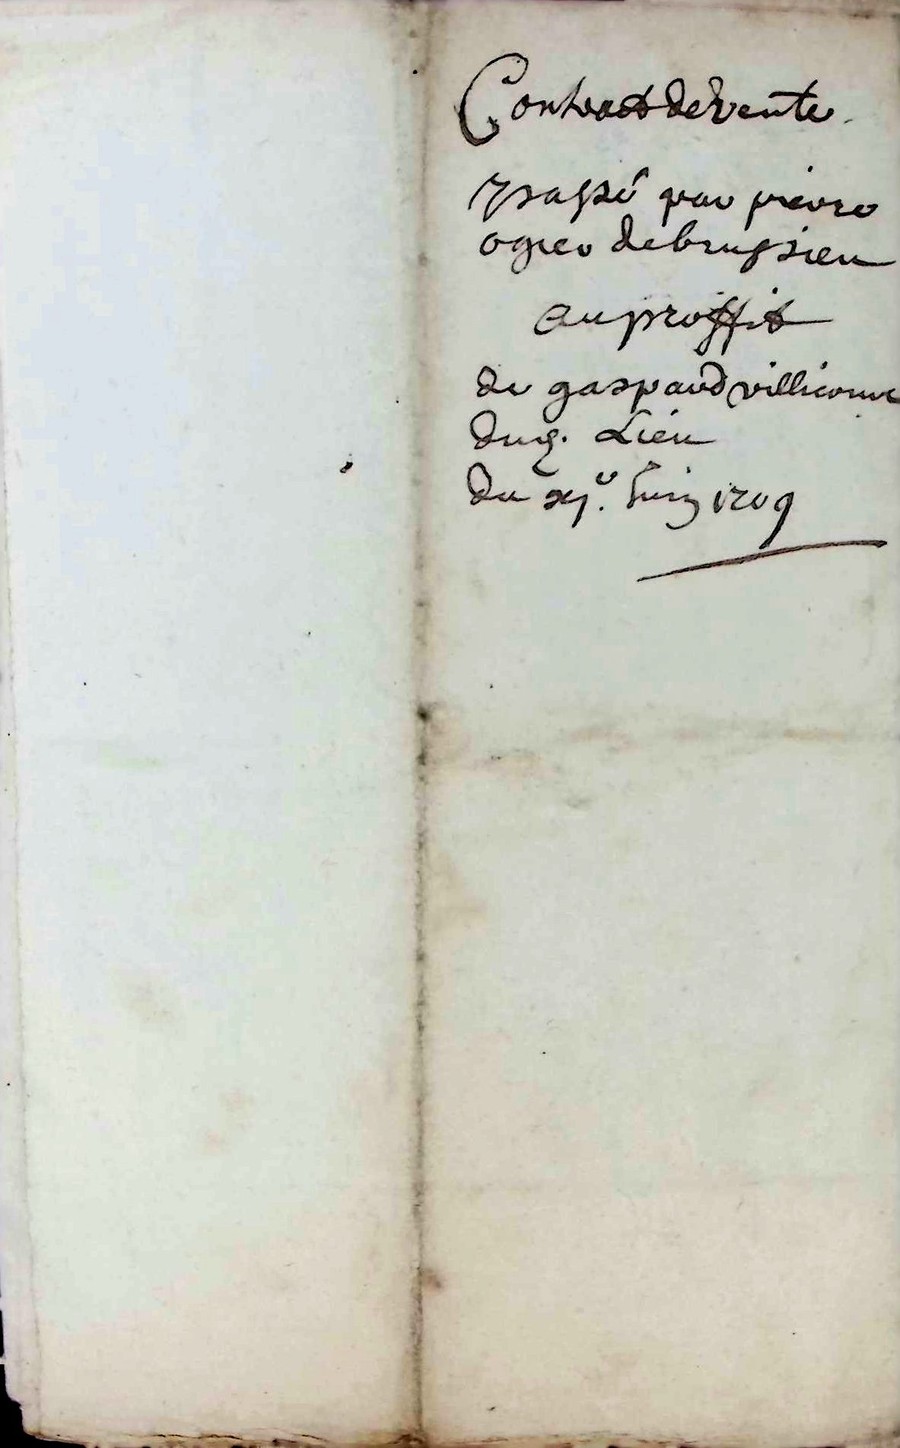 Contract de vente
passé par pierre
ogier de brussieu
au proffit
de gaspard villicome
dud. Lieu
du xj.e Juin 1709